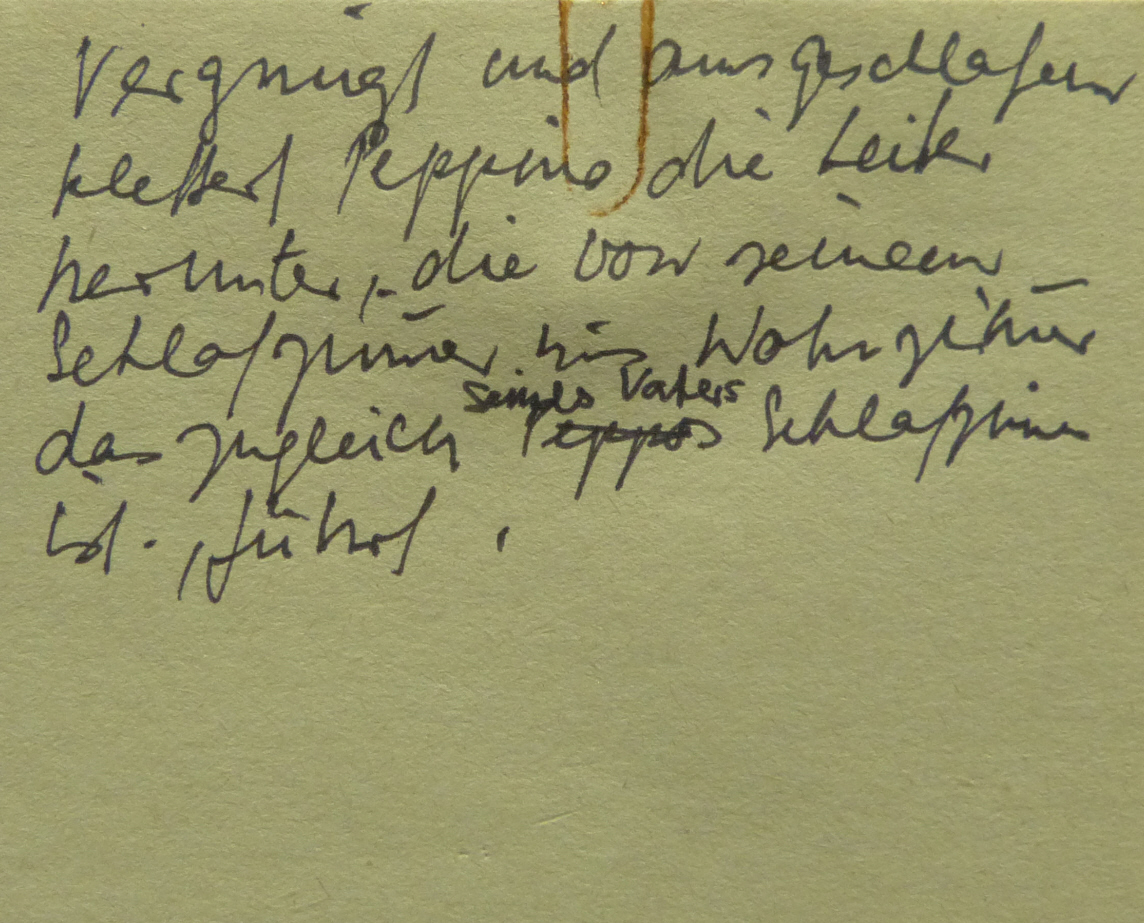 Vergnügt und ausgeschlafen
klettert Peppino die Leiter
herunter, die von seinem
Schlafzim̅er ins Wohnzim̅er
das zugleich seines Vaters Peppos Schlafzimmer
ist, führt.